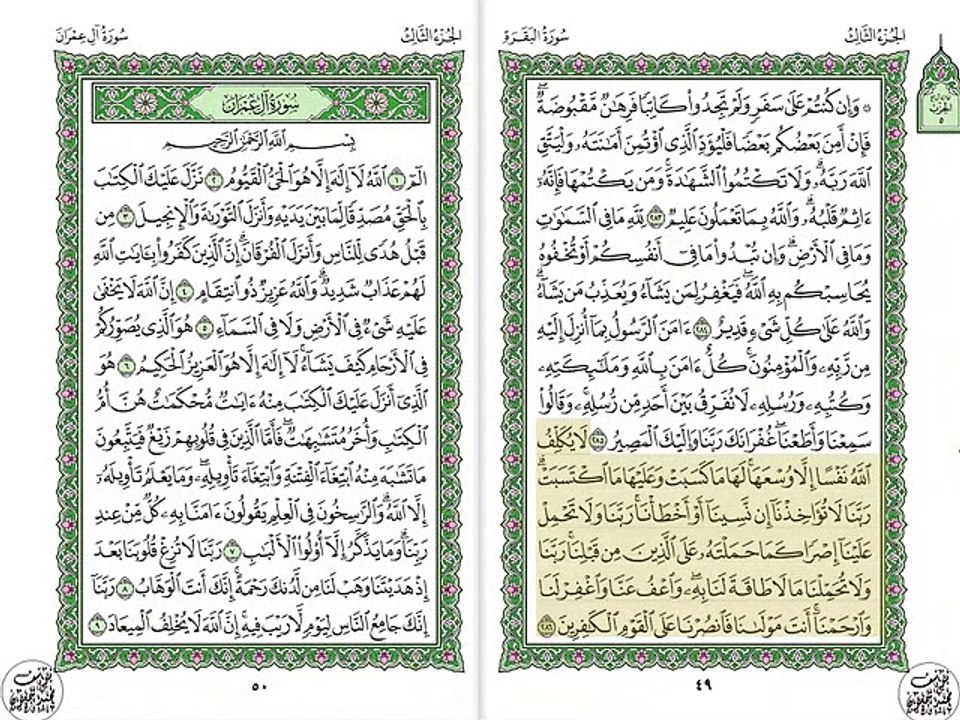 الجزء الثالث
سورة البقرة
۞ وَإِن كُنتُمْ عَلَىٰ سَفَرٍ وَلَمْ تَجِدُوا۟ كَاتِبًا فَرِهَـٰنٌ مَّقْبُوضَةٌ ۖ
فَإِنْ أَمِنَ بَعْضُكُم بَعْضًا فَلْيُؤَدِّ ٱلَّذِى ٱؤْتُمِنَ أَمَـٰنَتَهُۥ وَلْيَتَّقِ
ٱللَّهَ رَبَّهُۥ ۗ وَلَا تَكْتُمُوا۟ ٱلشَّهَـٰدَةَ ۚ وَمَن يَكْتُمْهَا فَإِنَّهُۥٓ
ءَاثِمٌ قَلْبُهُۥ ۗ وَٱللَّهُ بِمَا تَعْمَلُونَ عَلِيمٌ ٢٨٣ لِّلَّهِ مَا فِى ٱلسَّمَـٰوَٰتِ
وَمَا فِى ٱلْأَرْضِ ۗ وَإِن تُبْدُوا۟ مَا فِىٓ أَنفُسِكُمْ أَوْ تُخْفُوهُ
يُحَاسِبْكُم بِهِ ٱللَّهُ ۖ فَيَغْفِرُ لِمَن يَشَآءُ وَيُعَذِّبُ مَن يَشَآءُ ۗ
وَٱللَّهُ عَلَىٰ كُلِّ شَىْءٍ قَدِيرٌ ٢٨٤ ءَامَنَ ٱلرَّسُولُ بِمَآ أُنزِلَ إِلَيْهِ
مِن رَّبِّهِۦ وَٱلْمُؤْمِنُونَ ۚ كُلٌّ ءَامَنَ بِٱللَّهِ وَمَلَـٰٓئِكَتِهِۦ
وَكُتُبِهِۦ وَرُسُلِهِۦ لَا نُفَرِّقُ بَيْنَ أَحَدٍ مِّن رُّسُلِهِۦ ۚ وَقَالُوا۟
سَمِعْنَا وَأَطَعْنَا ۖ غُفْرَانَكَ رَبَّنَا وَإِلَيْكَ ٱلْمَصِيرُ ٢٨٥ لَا يُكَلِّفُ
ٱللَّهُ نَفْسًا إِلَّا وُسْعَهَا ۚ لَهَا مَا كَسَبَتْ وَعَلَيْهَا مَا ٱكْتَسَبَتْ ۗ
رَبَّنَا لَا تُؤَاخِذْنَآ إِن نَّسِينَآ أَوْ أَخْطَأْنَا ۚ رَبَّنَا وَلَا تَحْمِلْ
عَلَيْنَآ إِصْرًا كَمَا حَمَلْتَهُۥ عَلَى ٱلَّذِينَ مِن قَبْلِنَا ۚ رَبَّنَا
وَلَا تُحَمِّلْنَا مَا لَا طَاقَةَ لَنَا بِهِۦ ۖ وَٱعْفُ عَنَّا وَٱغْفِرْ لَنَا
وَٱرْحَمْنَآ ۚ أَنتَ مَوْلَىٰنَا فَٱنصُرْنَا عَلَى ٱلْقَوْمِ ٱلْكَـٰفِرِينَ ٢٨٦
٤٩
الجزء الثالث
سورة آل عمران
سورة آل عمران
بِسْمِ ٱللَّهِ ٱلرَّحْمَـٰنِ ٱلرَّحِيمِ
الٓمٓ ١ ٱللَّهُ لَآ إِلَـٰهَ إِلَّا هُوَ ٱلْحَىُّ ٱلْقَيُّومُ ٢ نَزَّلَ عَلَيْكَ ٱلْكِتَـٰبَ
بِٱلْحَقِّ مُصَدِّقًا لِّمَا بَيْنَ يَدَيْهِ وَأَنزَلَ ٱلتَّوْرَىٰةَ وَٱلْإِنجِيلَ ٣ مِن
قَبْلُ هُدًى لِّلنَّاسِ وَأَنزَلَ ٱلْفُرْقَانَ ۗ إِنَّ ٱلَّذِينَ كَفَرُوا۟ بِـَٔايَـٰتِ ٱللَّهِ
لَهُمْ عَذَابٌ شَدِيدٌ ۗ وَٱللَّهُ عَزِيزٌ ذُو ٱنتِقَامٍ ٤ إِنَّ ٱللَّهَ لَا يَخْفَىٰ
عَلَيْهِ شَىْءٌ فِى ٱلْأَرْضِ وَلَا فِى ٱلسَّمَآءِ ٥ هُوَ ٱلَّذِى يُصَوِّرُكُمْ
فِى ٱلْأَرْحَامِ كَيْفَ يَشَآءُ ۚ لَآ إِلَـٰهَ إِلَّا هُوَ ٱلْعَزِيزُ ٱلْحَكِيمُ ٦ هُوَ
ٱلَّذِىٓ أَنزَلَ عَلَيْكَ ٱلْكِتَـٰبَ مِنْهُ ءَايَـٰتٌ مُّحْكَمَـٰتٌ هُنَّ أُمُّ
ٱلْكِتَـٰبِ وَأُخَرُ مُتَشَـٰبِهَـٰتٌ ۖ فَأَمَّا ٱلَّذِينَ فِى قُلُوبِهِمْ زَيْغٌ فَيَتَّبِعُونَ
مَا تَشَـٰبَهَ مِنْهُ ٱبْتِغَآءَ ٱلْفِتْنَةِ وَٱبْتِغَآءَ تَأْوِيلِهِۦ ۗ وَمَا يَعْلَمُ تَأْوِيلَهُۥٓ
إِلَّا ٱللَّهُ ۗ وَٱلرَّٰسِخُونَ فِى ٱلْعِلْمِ يَقُولُونَ ءَامَنَّا بِهِۦ كُلٌّ مِّنْ عِندِ
رَبِّنَا ۗ وَمَا يَذَّكَّرُ إِلَّآ أُو۟لُوا۟ ٱلْأَلْبَـٰبِ ٧ رَبَّنَا لَا تُزِغْ قُلُوبَنَا بَعْدَ
إِذْ هَدَيْتَنَا وَهَبْ لَنَا مِن لَّدُنكَ رَحْمَةً ۚ إِنَّكَ أَنتَ ٱلْوَهَّابُ ٨ رَبَّنَآ
إِنَّكَ جَامِعُ ٱلنَّاسِ لِيَوْمٍ لَّا رَيْبَ فِيهِ ۚ إِنَّ ٱللَّهَ لَا يُخْلِفُ ٱلْمِيعَادَ ٩
٥٠